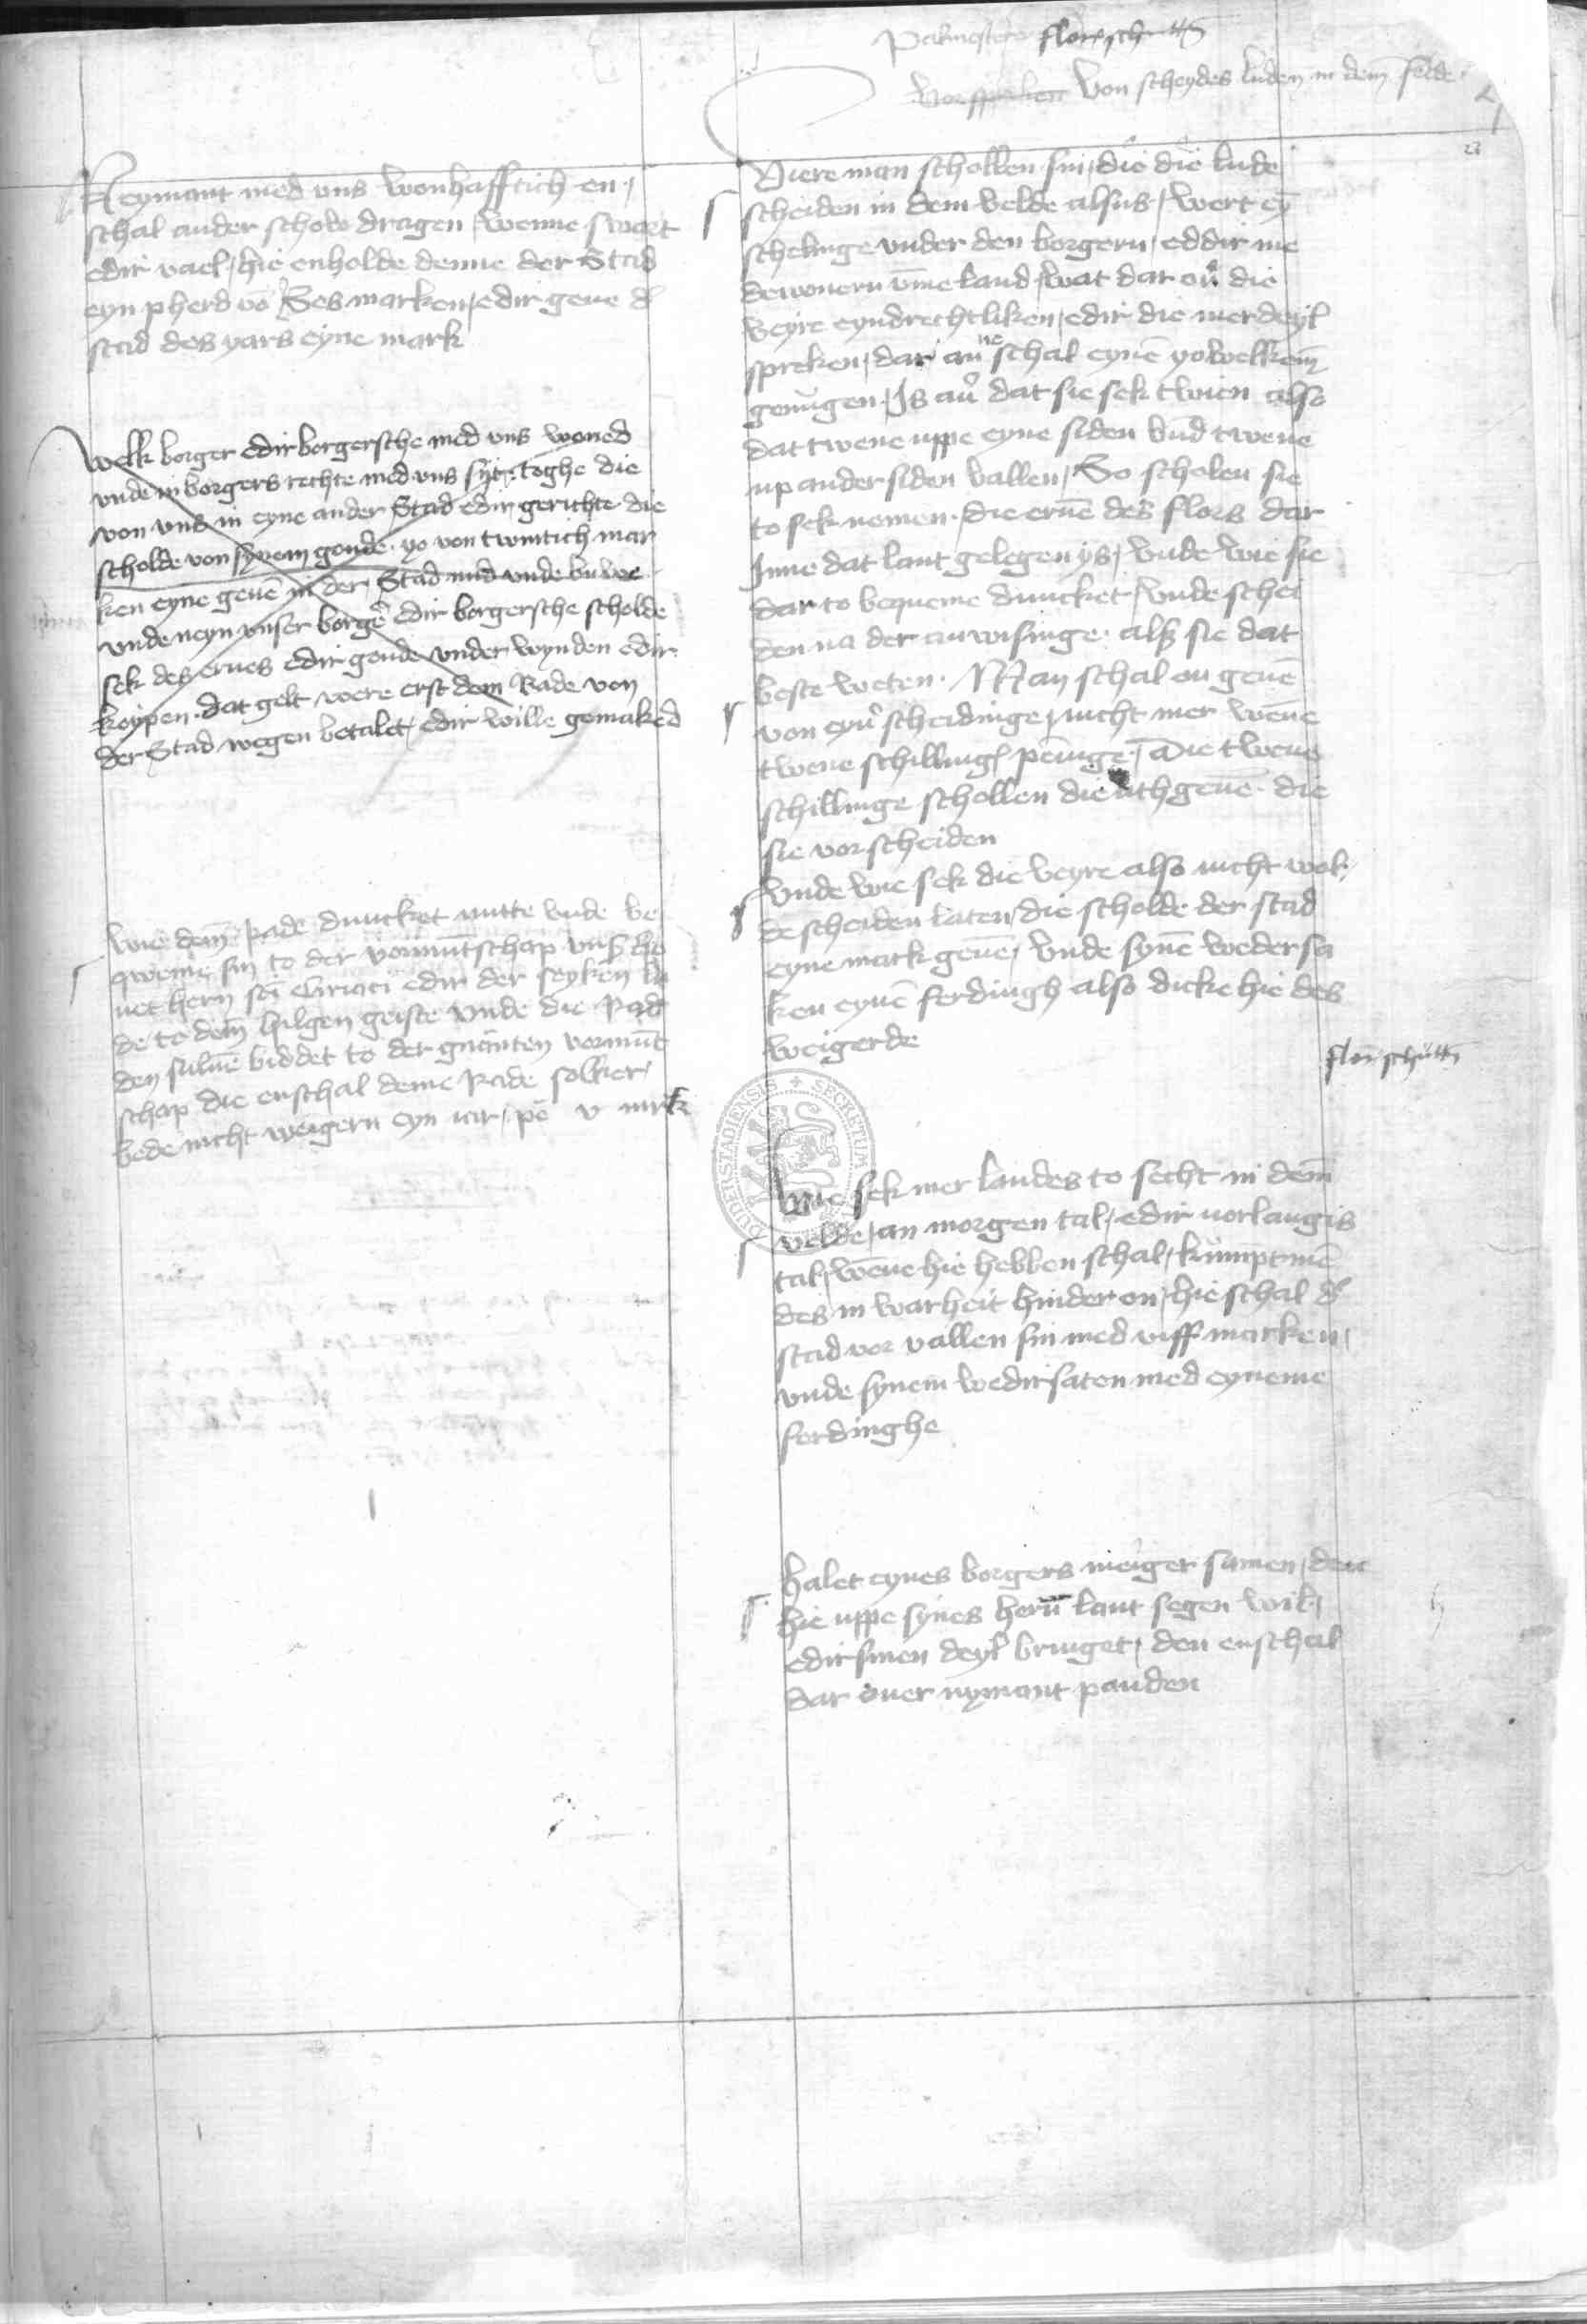 florschutts
von scheydes luden in dem felde
Neymant med vns wonhafftich en
schal ander schow dragen wenne swart
edir vael hie enholde denne der Stad
eyn pherd vō Ses marken edir geue d'
stad des yars eyne mark
Welk borger edir borgersche med vns woned
vnde in borgers rechte med vns syt toghe die
von vns in eyne ander Stad edir gerichte die
scholde von synem goude yo von twintich mar
ken eyne geuē in der Stad nud vnde buwe
vnde neyn vnser borgē edir borgersche scholde
sek des erues edir goude vnder wynden edir
koypen dat gelt were erst dem Rade von
der Stad wegen betalet edir wille gemaked
Wie dem Rade duncket nutte vnde be
qweme sin to der vormūtschap vns
uer hern sci Ciriaci edir der seyken lu
de to dem hilgen geiste vnde die Rad
den suluē biddet to der gnanten vormūt
schap die enschal deme Rade solker
bede nicht weigern eyn iar pē v mrk
Viere man schollen sin die die lude
scheiden in dem velde alsus wert ey
schelinge vnder den borgern eddir me
dewonern vme land wat dar ou' die
veyre eyndrechtliken edir die merdeyl
spreken dar an ne schal eynē yowelkem
genugen Is au' dat sie sek twien also
dat twene uppe eyne siden vnd twene
up ander siden vallen So scholen sie
to sek nemen die eruē des flors dar
Inne dat lant gelegen ys vnde wie sie
dar to bequeme duncket vnde schei
den na der anwisinge als sie dat
beste weten Man schal on geuē
von eyn' scheidinge nicht mer wēne
twene schilling penīge Die twene
schillinge schollen die uthgeuē die
sie vor scheiden
Vnde wie sek die veyre also nicht wol
de scheiden laten die scholde der stad
eyne mark geuē vnde synē wedersa
ken eynē ferdingh also dicke hie des
weigerde
flor schutts
Wie sek mer landes to secht in dem
velde an morgen tal edir vorlangis
tal wēne hie hebben schal kumpt mē
des in warheit hinder on hie schal d'
stad vor vallen sin med viff marken
vnde synem wedirsaken med eyneme
ferdinghe
Halet eynes borgers meiger samen den
hie uppe synes herū lant segen wil
edir sinen deyl bringet den enschal
dar ouer nymant panden
DUDERSTADIENSIS SECRETUM